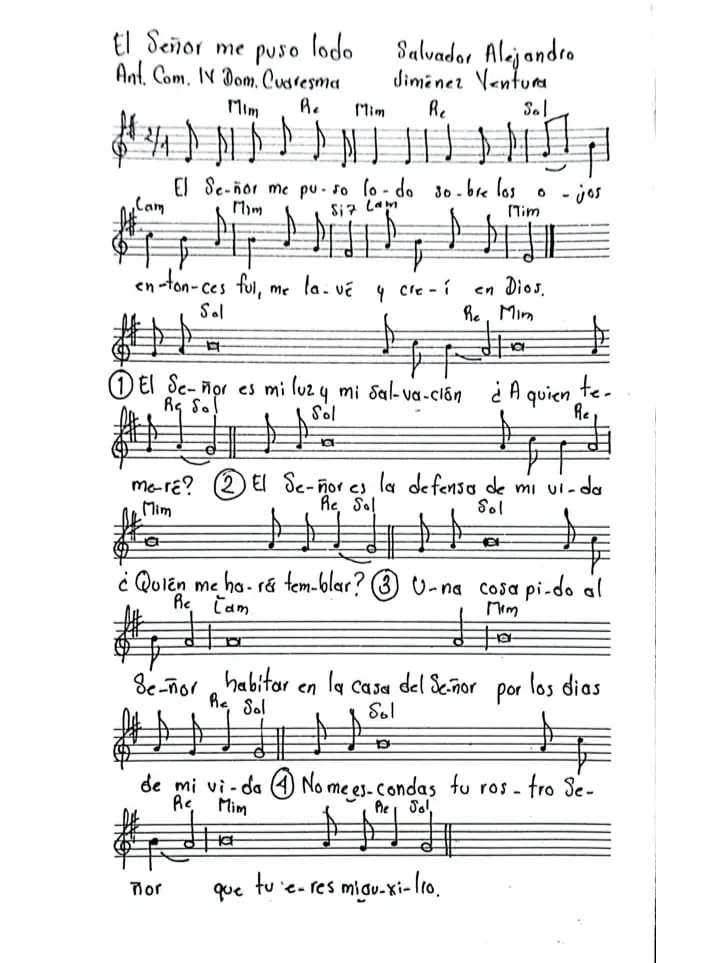 El Señor me puso lodo Salvador Alejandro
Ant. Com. IV Dom. Cuaresma Jiménez Ventura
Mim Re Mim Re Sol
2/4
El Se-ñor me pu-so lo-do so-bre los o-jos
Lam Mim Si7 Lam Mim
en-ton-ces fui, me la-vé y cre-í en Dios.
Sol Re Mim
① El Se-ñor es mi luz y mi Sal-va-ción ¿A quien te-
Re Sol Sol Re
me-ré? ② El Se-ñor es la defensa de mi vi-da
Mim Re Sol Sol
¿Quién me ha-rá tem-blar? ③ U-na cosa pi-do al
Re Lam Mim
Se-ñor habitar en la casa del Se-ñor por los dias
Re Sol Sol
de mi vi-da ④ No me es-condas tu ros-tro Se-
Re Mim Re Sol
ñor que tu e-res mi au-xi-lio.